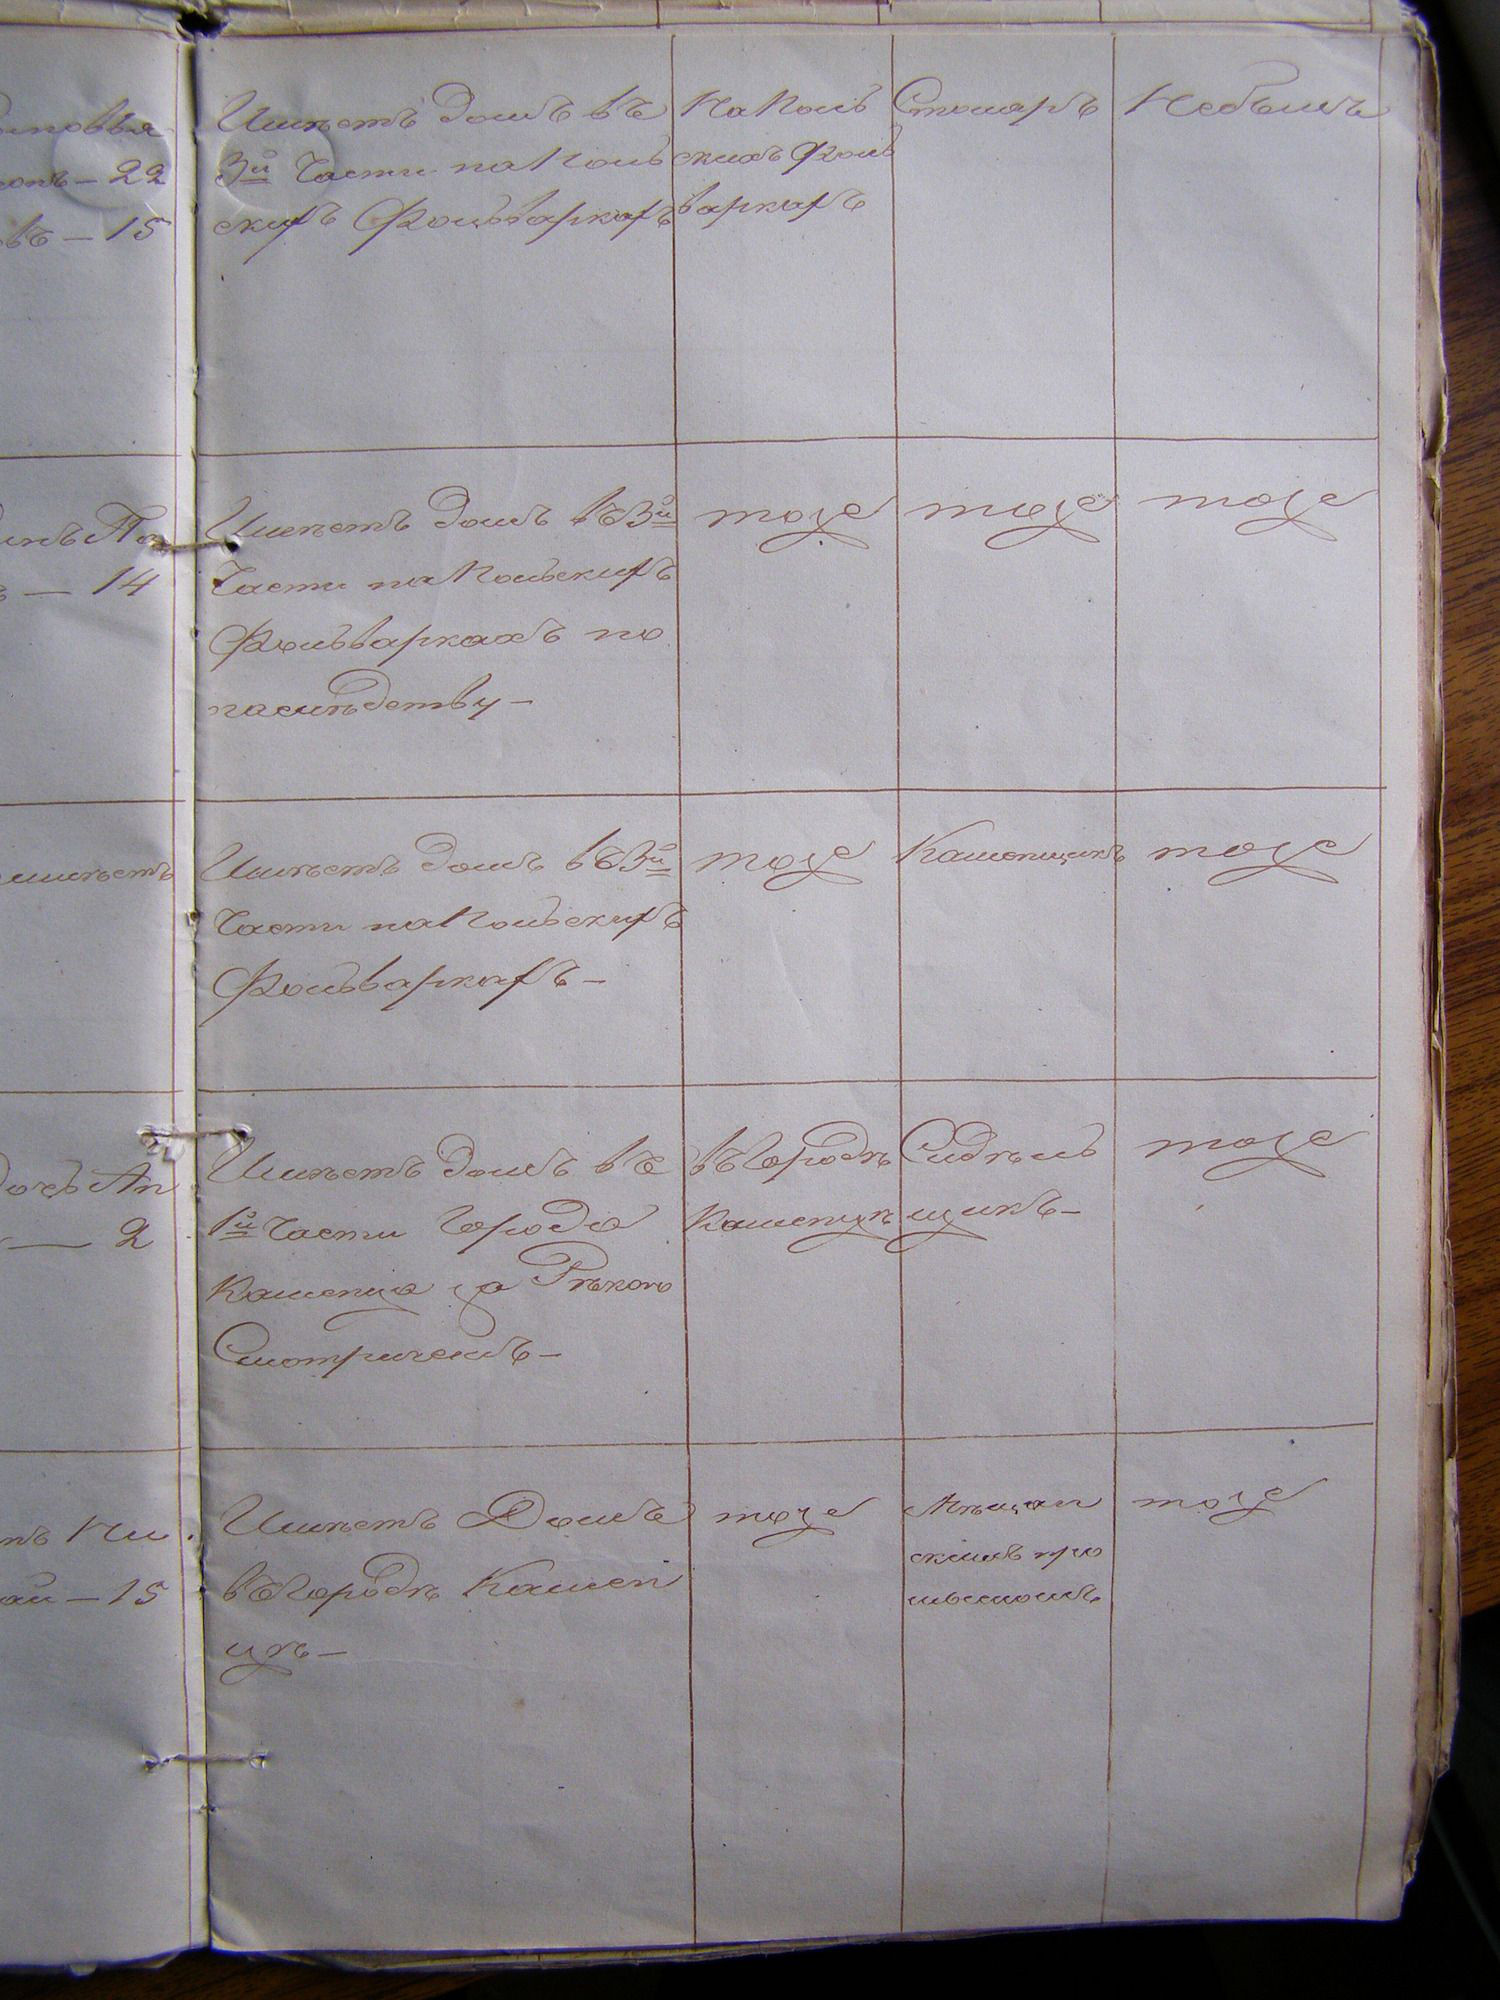 Имѣетъ домъ въ
3й Части на Поль
скихъ Фольваркахъ
На Поль
скихъ Фоль
варкахъ
Столяръ
Небылъ
— 22
въ — 15
Имѣетъ домъ въ 3й
Части на Польскихъ
Фольваркахъ по
наслѣдству —
тоже
тоже
тоже
— 14
Имѣетъ домъ въ 3й
Части на Польскихъ
Фольваркахъ —
тоже
Каменщикъ
тоже
Имѣетъ домъ въ
1й Части Города
Каменца за Рѣкою
Смотричемъ —
въ Городѣ
Каменцѣ
Сидѣль
щикъ —
тоже
— 2
Имѣетъ Домъ
въ Городѣ Камен
цѣ —
тоже
Мѣщан
скимъ про
мысломъ
тоже
— 15